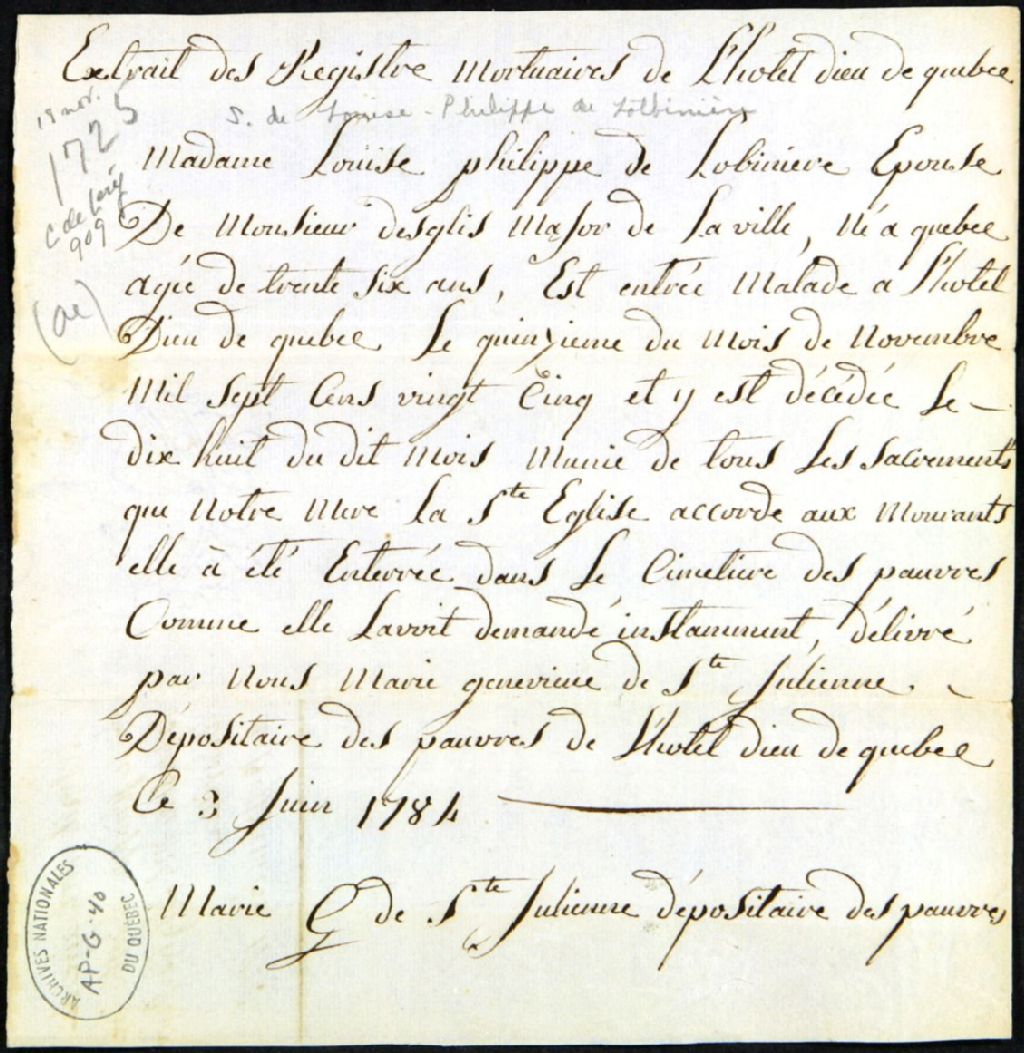 Extrait des Registre Mortuaires de L'hotel dieu de quebec
18 nov.
1725
S. de Louise-Philippe de Lotbinière
Madame Louise philippe de Lobiniere Epouse
C de
909
De Monsieur desglis Major de La ville, Né a quebec
agée de trente six ans, Est entrée Malade a L'hotel
(ae)
Dieu de quebec Le quinzieme du Mois de Novembre
Mil sept Cens vingt Cinq et y est décédée Le -
dix huit du dit Mois Munie de tous Les sacrements
que Notre Mere La Ste Eglise accorde aux Mourants
elle à été Enterrée dans Le Cimetiere des pauvres
Comme elle Lavoit demandé instamment, délivré
par Nous Marie genevieve de Ste Julienne. -
Dépositaire des pauvres de L'hotel dieu de quebec
Ce 3 Juin 1784
Marie G de Ste Julienne dépositaire des pauvres
ARCHIVES NATIONALES
AP-G-40
DU QUÉBEC